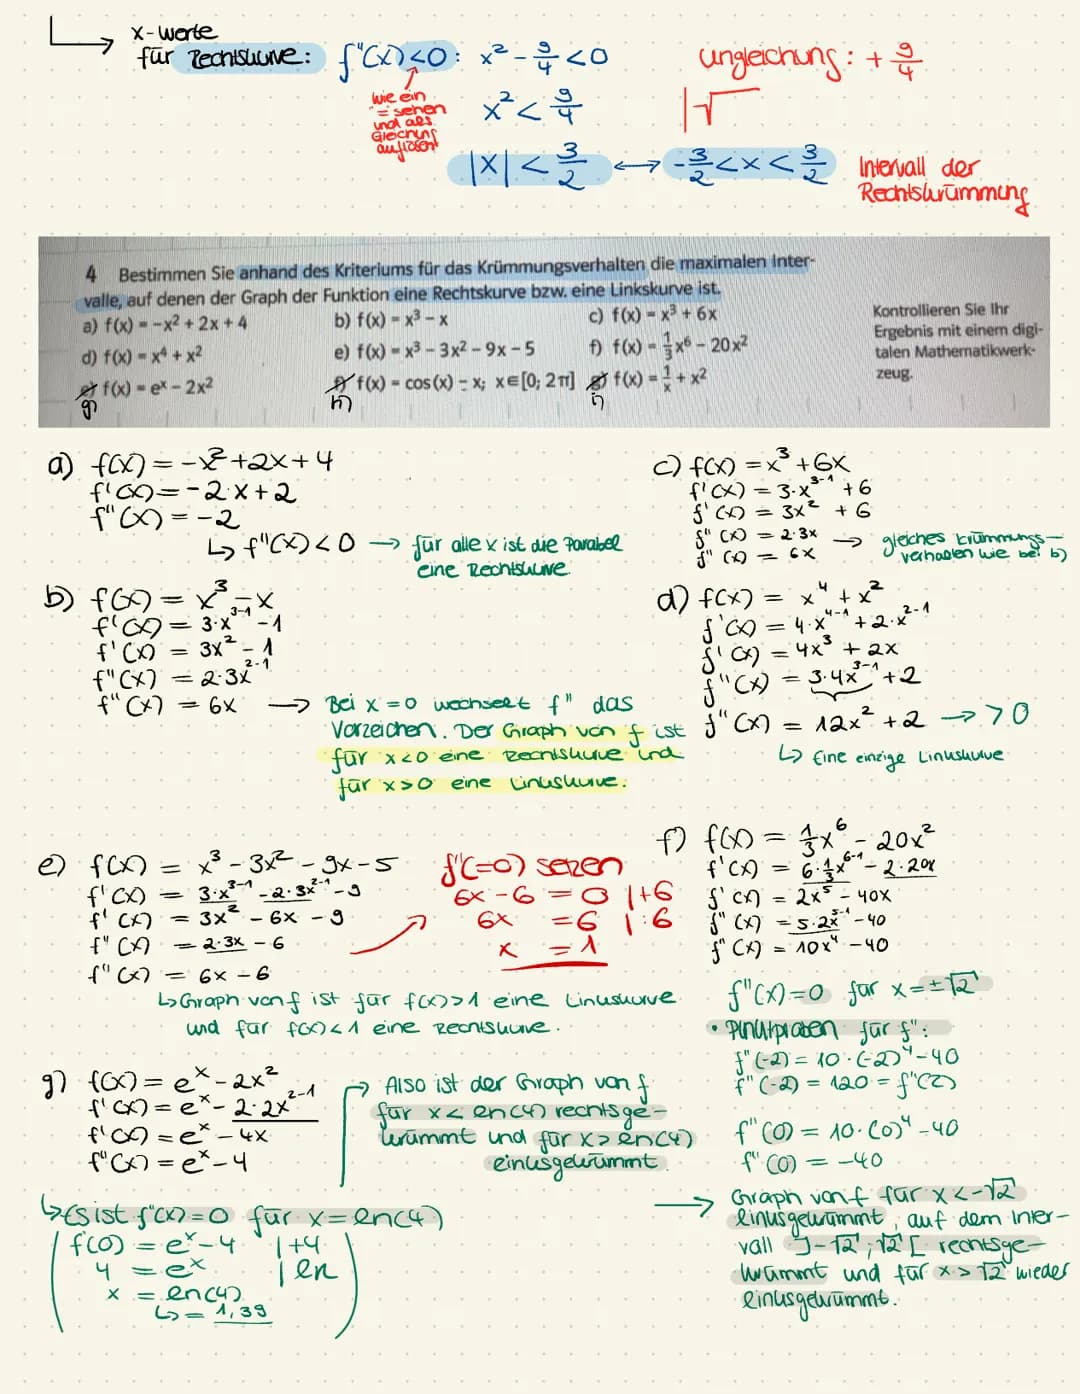 x-werte
für Rechtskurve: f"(x)<0: x² - 9/4 < 0
ungleichung: + 9/4
wie ein
"=" sehen
und als
Gleichung
auflösen
x² < 9/4
|√
|x| < 3/2 ⟷ -3/2 < x < 3/2
Intervall der
Rechtskrümmung
4 Bestimmen Sie anhand des Kriteriums für das Krümmungsverhalten die maximalen Inter-
valle, auf denen der Graph der Funktion eine Rechtskurve bzw. eine Linkskurve ist.
a) f(x) = -x² + 2x + 4 b) f(x) = x³ - x c) f(x) = x³ + 6x
d) f(x) = x⁴ + x² e) f(x) = x³ - 3x² - 9x - 5 f) f(x) = 1/3 x⁶ - 20x²
f(x) = eˣ - 2x² f(x) = cos(x) - x; x∈[0; 2π] f(x) = 1/x + x²
g) h) i)
Kontrollieren Sie Ihr
Ergebnis mit einem digi-
talen Mathematikwerk-
zeug.
a) f(x) = -x²+2x+4
f'(x) = -2·x+2
f"(x) = -2
↳ f"(x)<0 → für alle x ist die Parabel
eine Rechtskurve.
b) f(x) = x³-x
f'(x) = 3·x³⁻¹-1
f'(x) = 3x² - 1
f"(x) = 2·3x²⁻¹
f"(x) = 6x → Bei x=0 wechselt f" das
Vorzeichen. Der Graph von f ist
für x<0 eine Rechtskurve und
für x>0 eine Linkskurve.
c) f(x) = x³+6x
f'(x) = 3·x³⁻¹ +6
f'(x) = 3x² + 6
f"(x) = 2·3x
f"(x) = 6x
→ gleiches Krümmungs-
verhalten wie bei b)
d) f(x) = x⁴ + x²
f'(x) = 4·x⁴⁻¹ + 2·x²⁻¹
f'(x) = 4x³ + 2x
f"(x) = 3·4x³⁻¹ +2
f"(x) = 12x² +2 → >0
↳ Eine einzige Linkskurve
e) f(x) = x³ - 3x² - 9x - 5
f'(x) = 3·x³⁻¹ - 2·3x²⁻¹ - 9
f'(x) = 3x² - 6x - 9
f"(x) = 2·3x - 6
f"(x) = 6x - 6
f"(=0) sezen
6x - 6 = 0 |+6
6x = 6 |:6
x = 1
↳ Graph von f ist für f(x)>1 eine Linkskurve
und für f(x)<1 eine Rechtskurve.
f) f(x) = 1/3x⁶ - 20x²
f'(x) = 6·1/3x⁶⁻¹ - 2·20x
f'(x) = 2x⁵ - 40x
f"(x) = 5·2x⁵⁻¹ - 40
f"(x) = 10x⁴ - 40
f"(x)=0 für x=±√2
• Punktproben für f":
f"(-2) = 10·(-2)⁴-40
f"(-2) = 120 = f"(2)
f"(0) = 10·(0)⁴-40
f"(0) = -40
→ Graph von f für x<-√2
linksgekrümmt, auf dem Inter-
vall ]-√2; √2[ rechtsge-
krümmt und für x>√2 wieder
linksgekrümmt.
g) f(x) = eˣ - 2x²
f'(x) = eˣ - 2·2x²⁻¹
f'(x) = eˣ - 4x
f"(x) = eˣ - 4
→ Also ist der Graph von f
für x< ln(4) rechtsge-
krümmt und für x> ln(4)
linksgekrümmt.
↳ Es ist f"(x)=0 für x=ln(4)
f(0) = eˣ-4 |+4
4 = eˣ |ln
x = ln(4)
↳ = 1,39